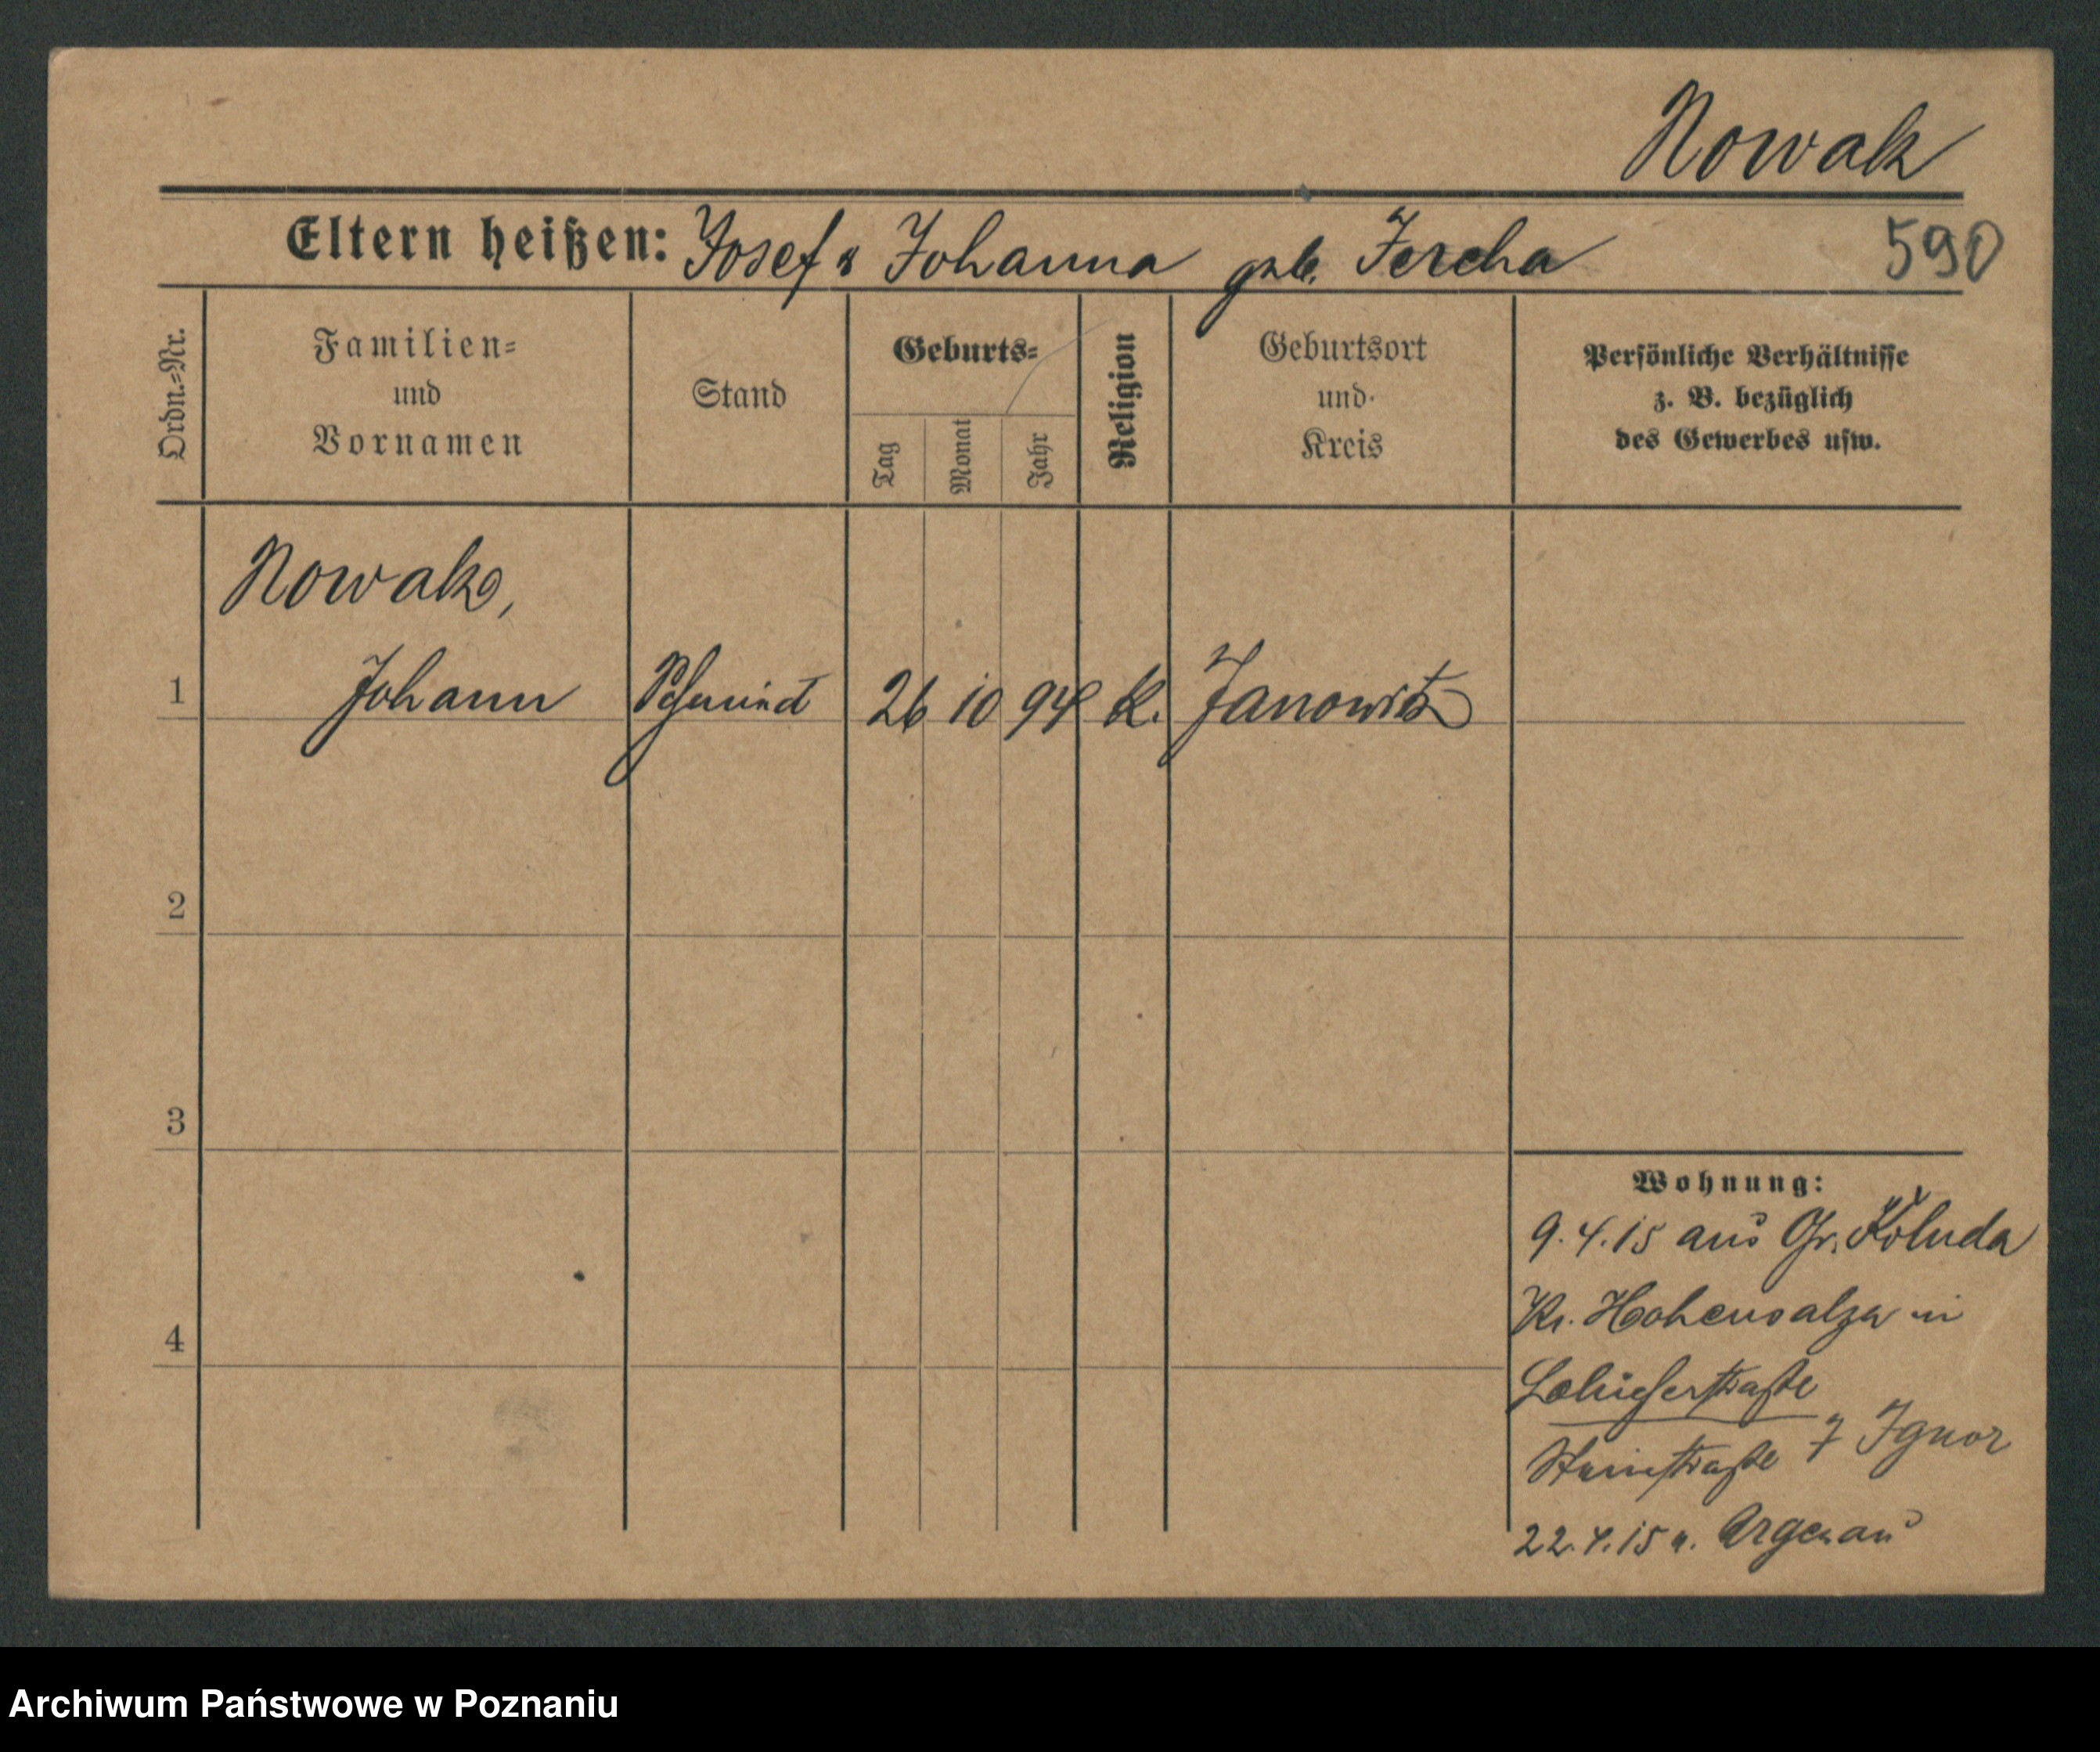 Nowak
Eltern heißen: Josef & Johanna geb. Jercha
590
Ordn.-Nr.
Familien-
und
Vornamen
Stand
Geburts-
Tag
Monat
Jahr
Religion
Geburtsort
und
Kreis
Persönliche Verhältnisse
z. B. bezüglich
des Gewerbes usw.
Nowak,
1 Johann Schmied 26 10 94 k. Janowitz
2
3
4
Wohnung:
9.4.15 aus Gr. Koluda
Kr. Hohensalza in
Steinstraße
22.4.15 n. Argenau
Archiwum Państwowe w Poznaniu